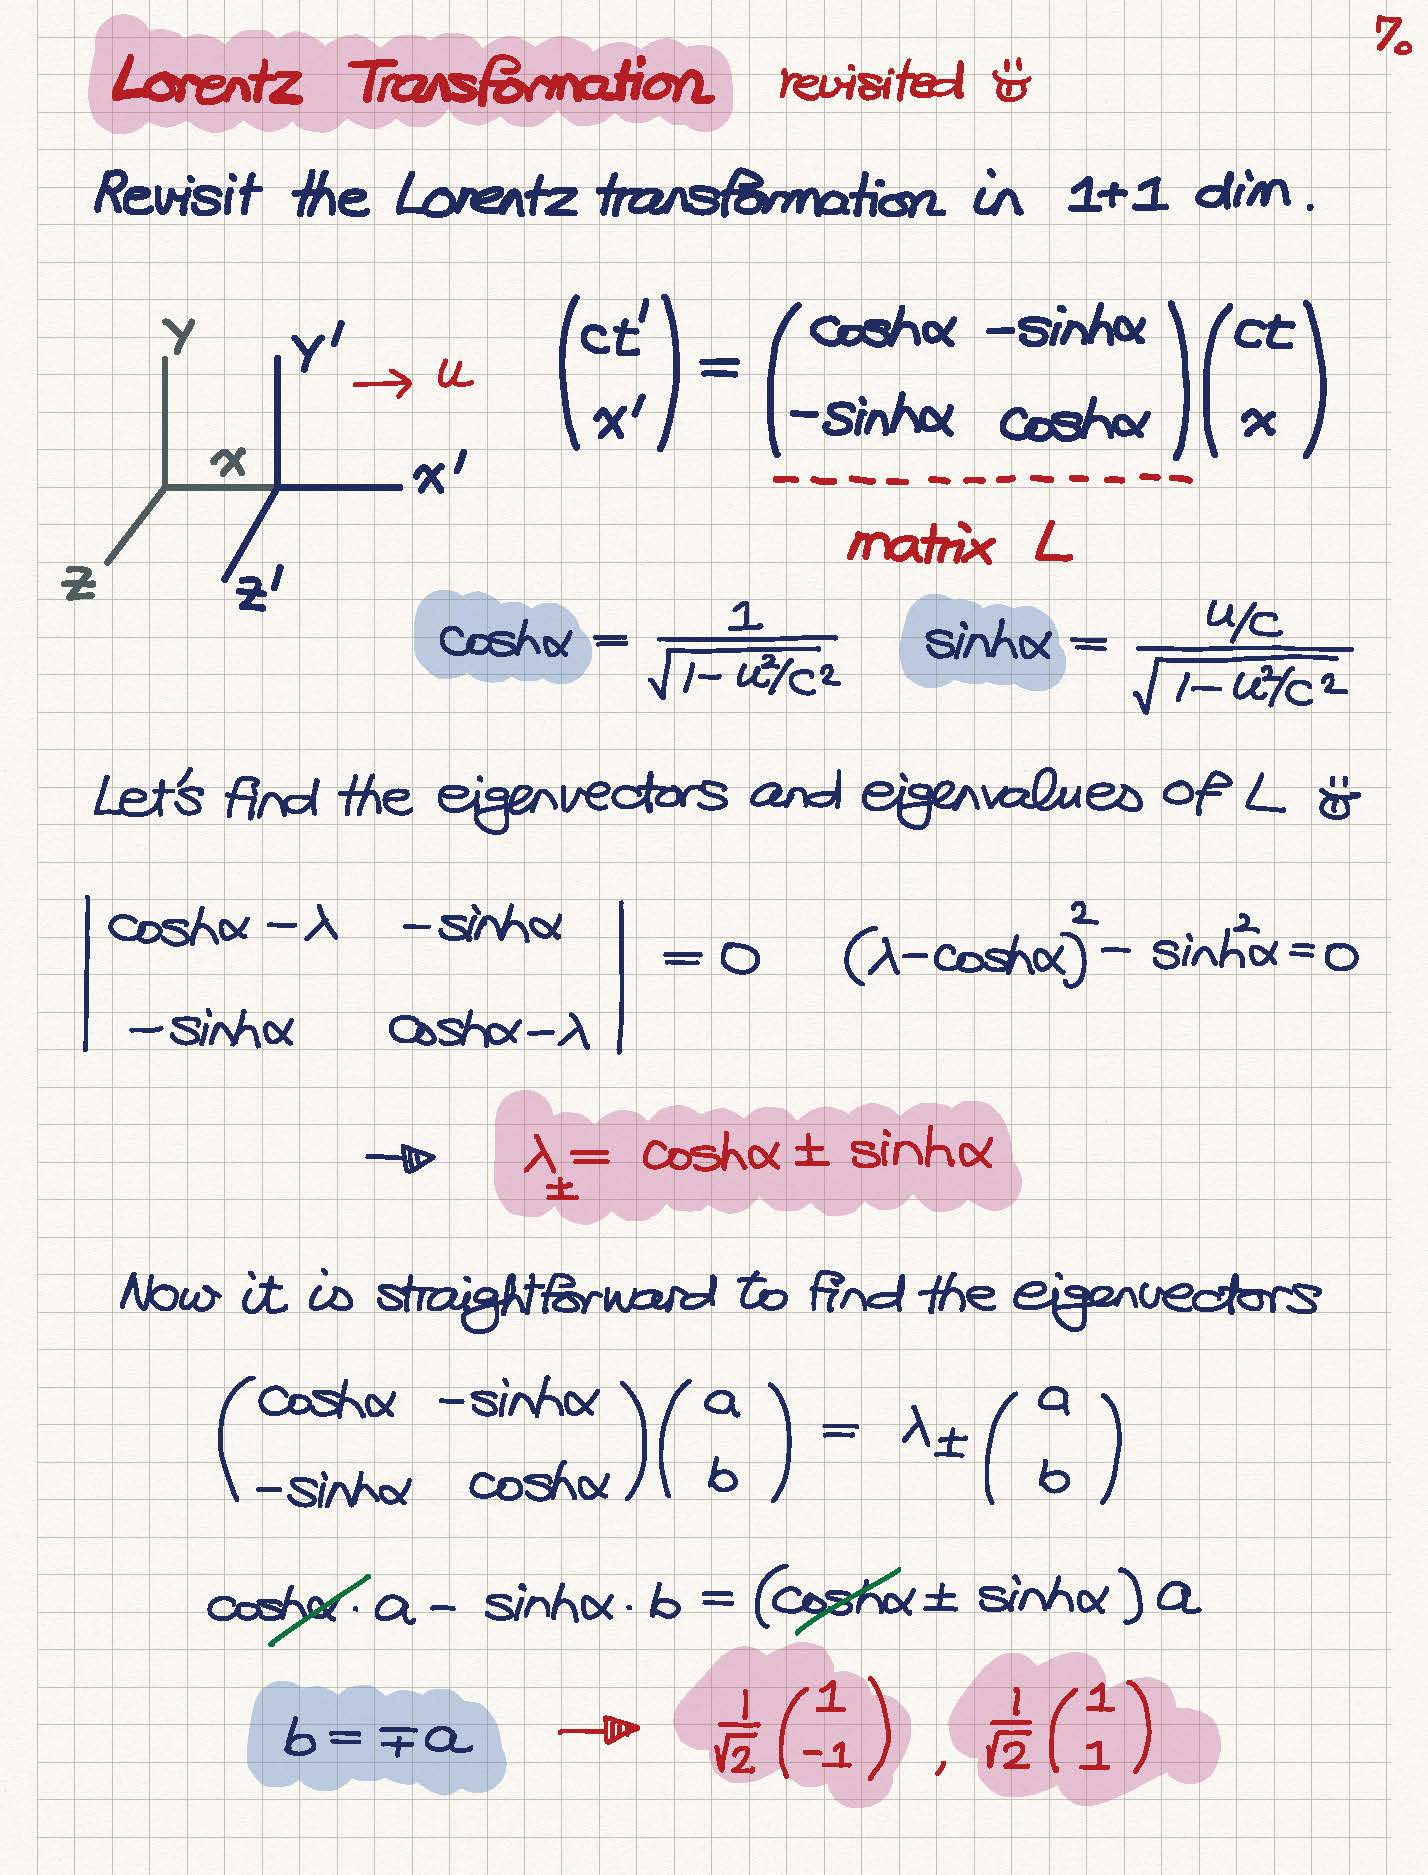 7.
Lorentz Transformation revisited
Revisit the Lorentz transformation in 1+1 dim.
y y' → u
x x'
z z'
(ct' x') = (coshα -sinhα -sinhα coshα) (ct x)
matrix L
coshα = 1/√(1-u²/c²) sinhα = (u/c)/√(1-u²/c²)
Let's find the eigenvectors and eigenvalues of L
|coshα-λ -sinhα
-sinhα coshα-λ| = 0 (λ-coshα)² - sinh²α = 0
→ λ± = coshα ± sinhα
Now it is straightforward to find the eigenvectors
(coshα -sinhα -sinhα coshα) (a b) = λ± (a b)
coshα·a - sinhα·b = (coshα ± sinhα) a
b = ∓a → 1/√2 (1 -1) , 1/√2 (1 1)